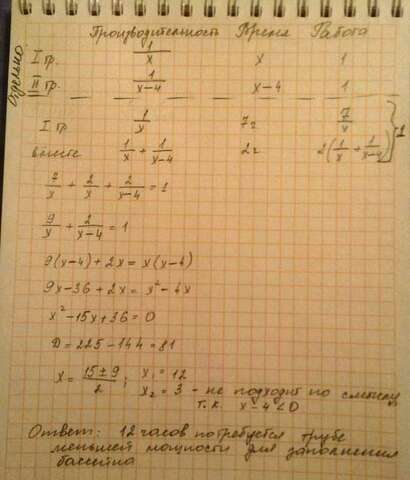 Производительность Время Работа
Отдельно
I гр. 1/x x 1
II гр. 1/(x-4) x-4 1
I гр 1/x 7ч 7/x
вместе 1/x + 1/(x-4) 2ч 2(1/x + 1/(x-4)) } 1
7/x + 2/x + 2/(x-4) = 1
9/x + 2/(x-4) = 1
9(x-4) + 2x = x(x-4)
9x-36+2x = x²-4x
x²-15x+36=0
D = 225-144 = 81
x = (15±9)/2 ; x₁ = 12
x₂ = 3 - не подходит по смыслу
т.к. x-4<0
Ответ: 12 часов потребуется трубе
меньшей мощности для заполнения
бассейна